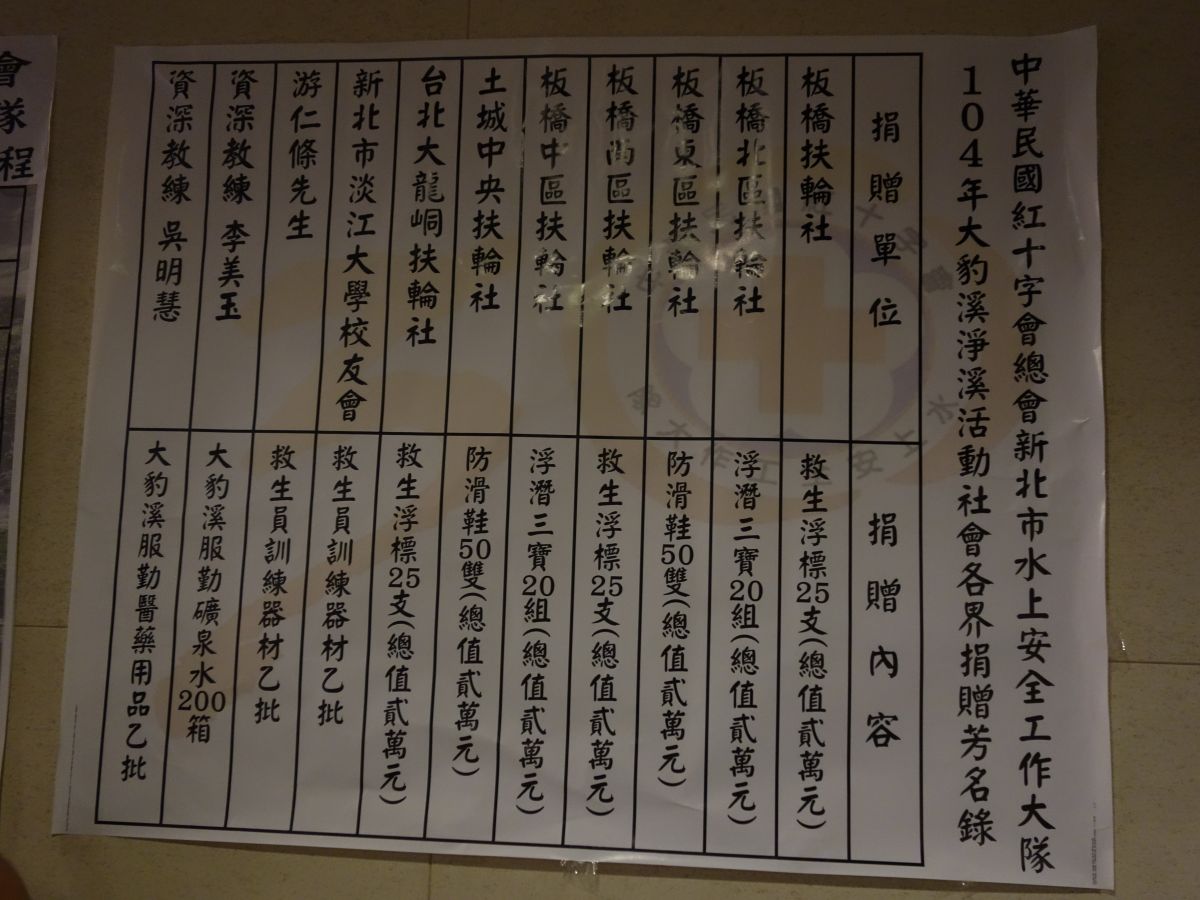 中華民國紅十字會總會新北市水上安全工作大隊
104年大豹溪淨溪活動社會各界捐贈芳名錄
捐贈單位
捐贈內容
板橋扶輪社
救生浮標25支(總值貳萬元)
板橋北區扶輪社
浮潛三寶20組(總值貳萬元)
板橋東區扶輪社
防滑鞋50雙(總值貳萬元)
板橋西區扶輪社
救生浮標25支(總值貳萬元)
板橋中區扶輪社
浮潛三寶20組(總值貳萬元)
土城中央扶輪社
防滑鞋50雙(總值貳萬元)
台北大龍峒扶輪社
救生浮標25支(總值貳萬元)
新北市淡江大學校友會
救生員訓練器材乙批
游仁條先生
救生員訓練器材乙批
資深教練 李美玉
大豹溪服勤礦泉水200箱
資深教練 吳明慧
大豹溪服勤醫藥用品乙批
會
隊
程